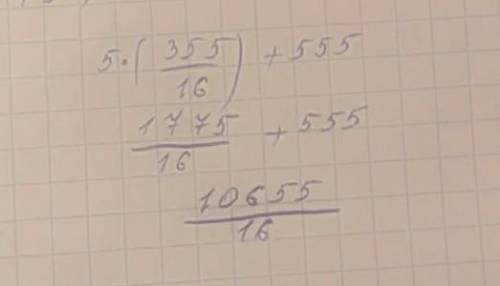 5·(355/16) + 555
1775/16 + 555
10655/16